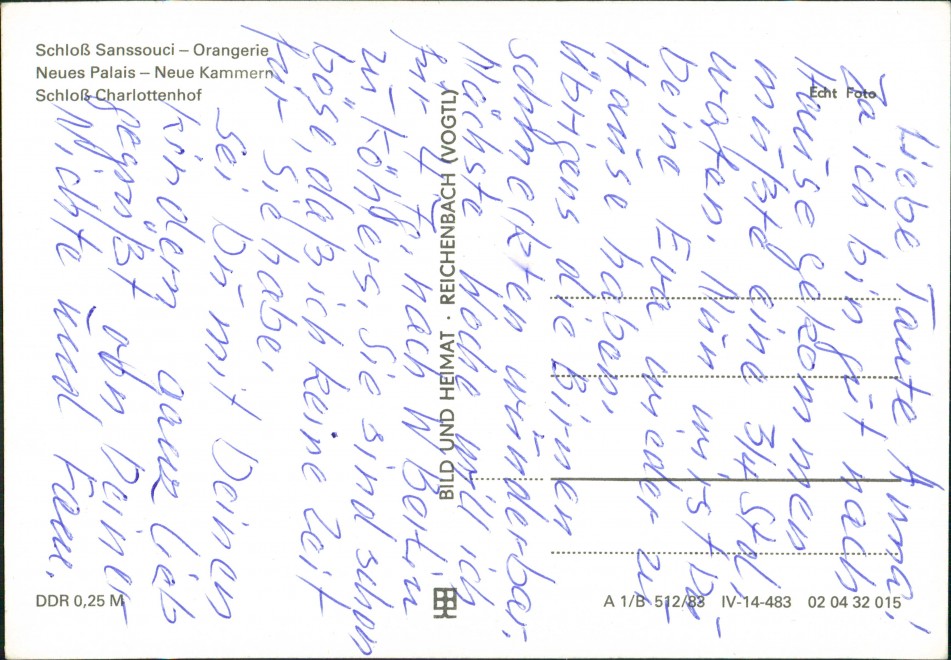 Schloß Sanssouci – Orangerie
Neues Palais – Neue Kammern
Schloß Charlottenhof
Echt Foto
BILD UND HEIMAT · REICHENBACH (VOGTL)
DDR 0,25 M
A 1/B 512/83 IV-14-483 02 04 32 015
Liebe Tante Anna!
Ja ich bin gut nach
Hause gekommen
mußte eine 3/4 Std,
warten. Nun wirst Du
Deine Eva wieder zu
Hause haben.
Übrigens die Birnen
schmeckten wunderbar.
Nächste Woche will ich
für 4 T. nach W Berlin
zu Köhlers. Sie sind schon
böse, daß ich keine Zeit
für sie habe.
Sei Du mit Deinen
Kindern ganz lieb
gegrüßt von Deiner
Nichte und Fam.